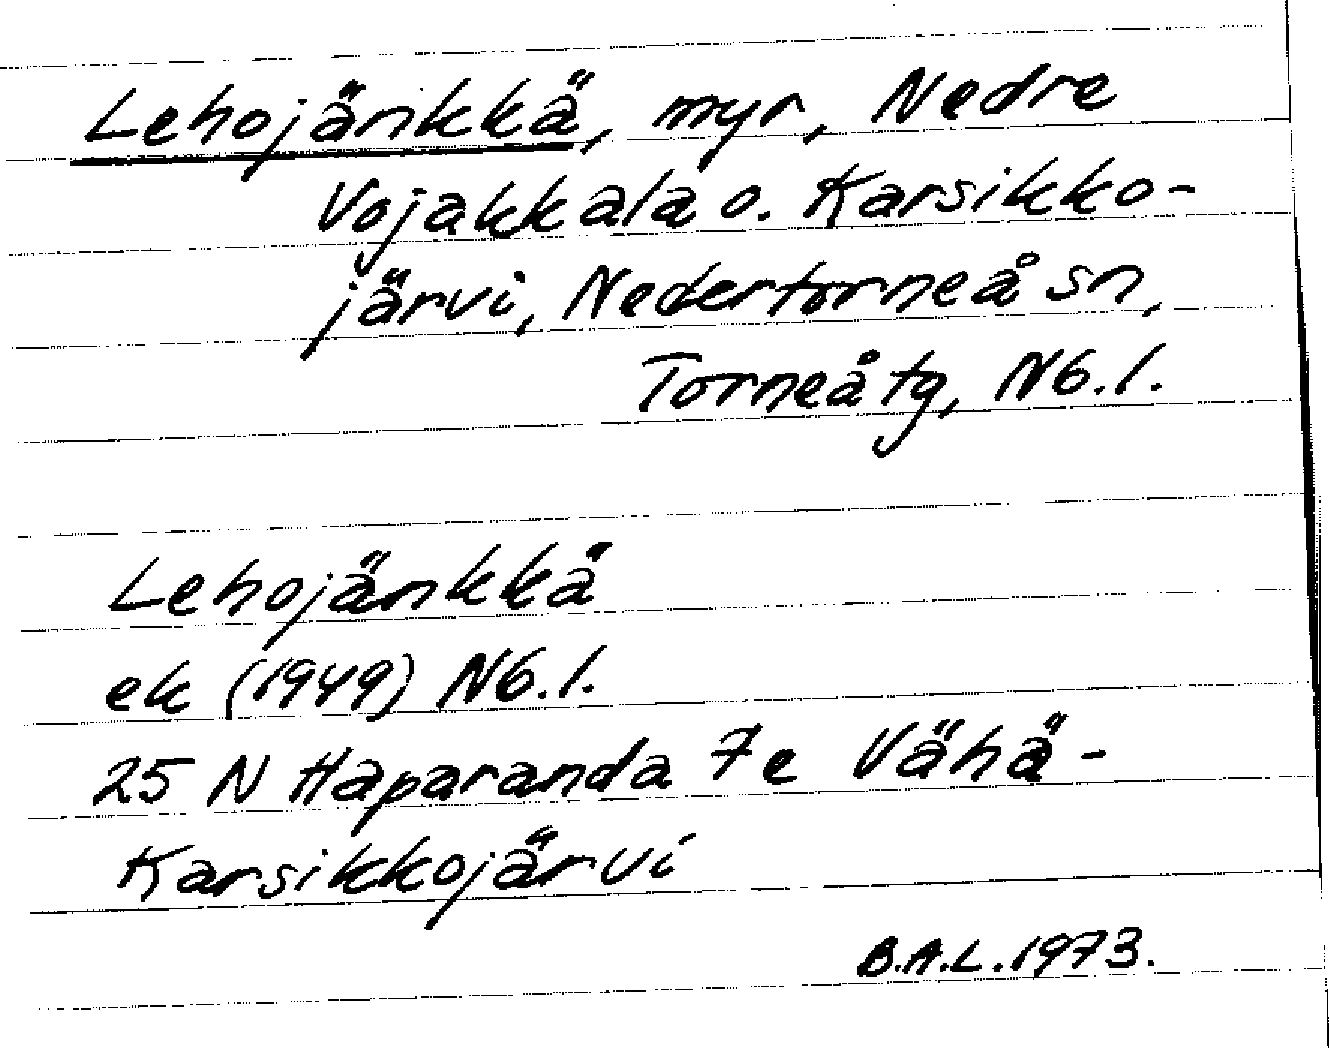 Lehojänkkä, myr, Nedre
Vojakkala o. Karsikko-
järvi, Nedertorneå sn,
Torneå tg, Nb.l.
Lehojänkkä
ek (1949) Nb.l.
25 N Haparanda 7e Vähä-
Karsikkojärvi
B.A.L. 1973.